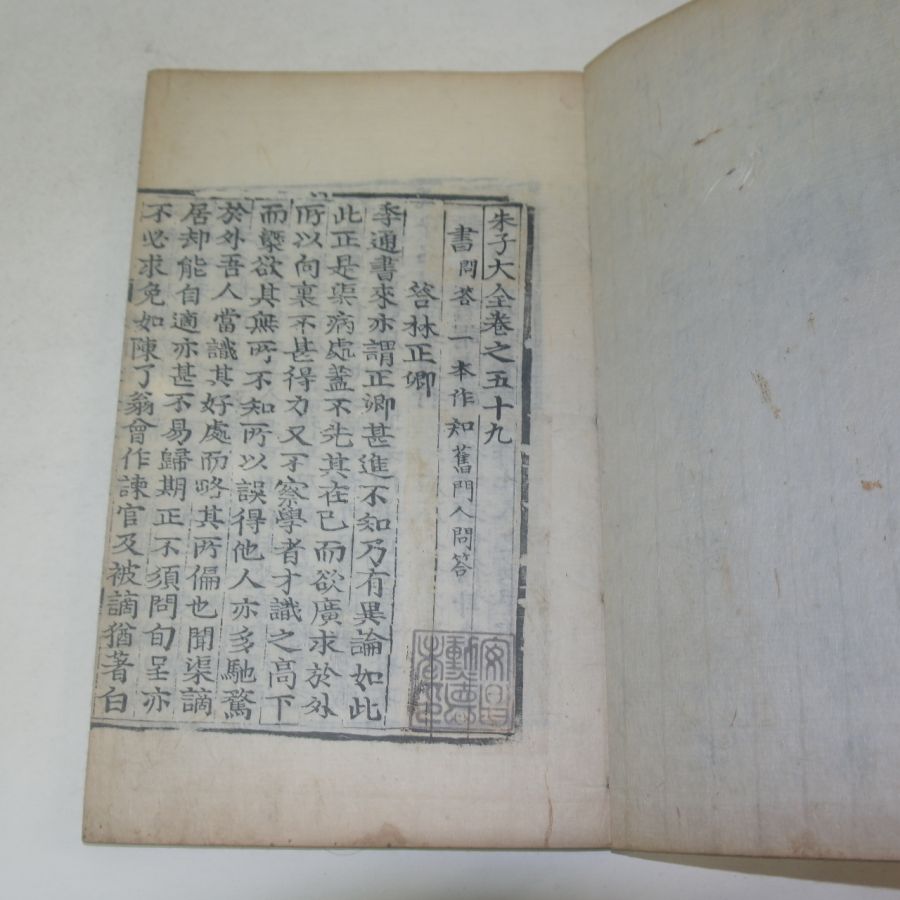 朱子大全卷之五十九
書問答一本作知舊門人問答
答林正卿
季通書來亦謂正卿甚進不知乃有異論如此
此正是渠病處蓋不先其在己而欲廣求於外
所以向裏不甚得力又不察學者才識之高下
而槩欲其無所不知所以誤得他人亦多馳騖
於外吾人當識其好處而略其所偏也聞渠謫
居却能自適亦甚不易歸期正不須問旬呈亦
不必求免如陳了翁曾作諫官及被謫猶著白